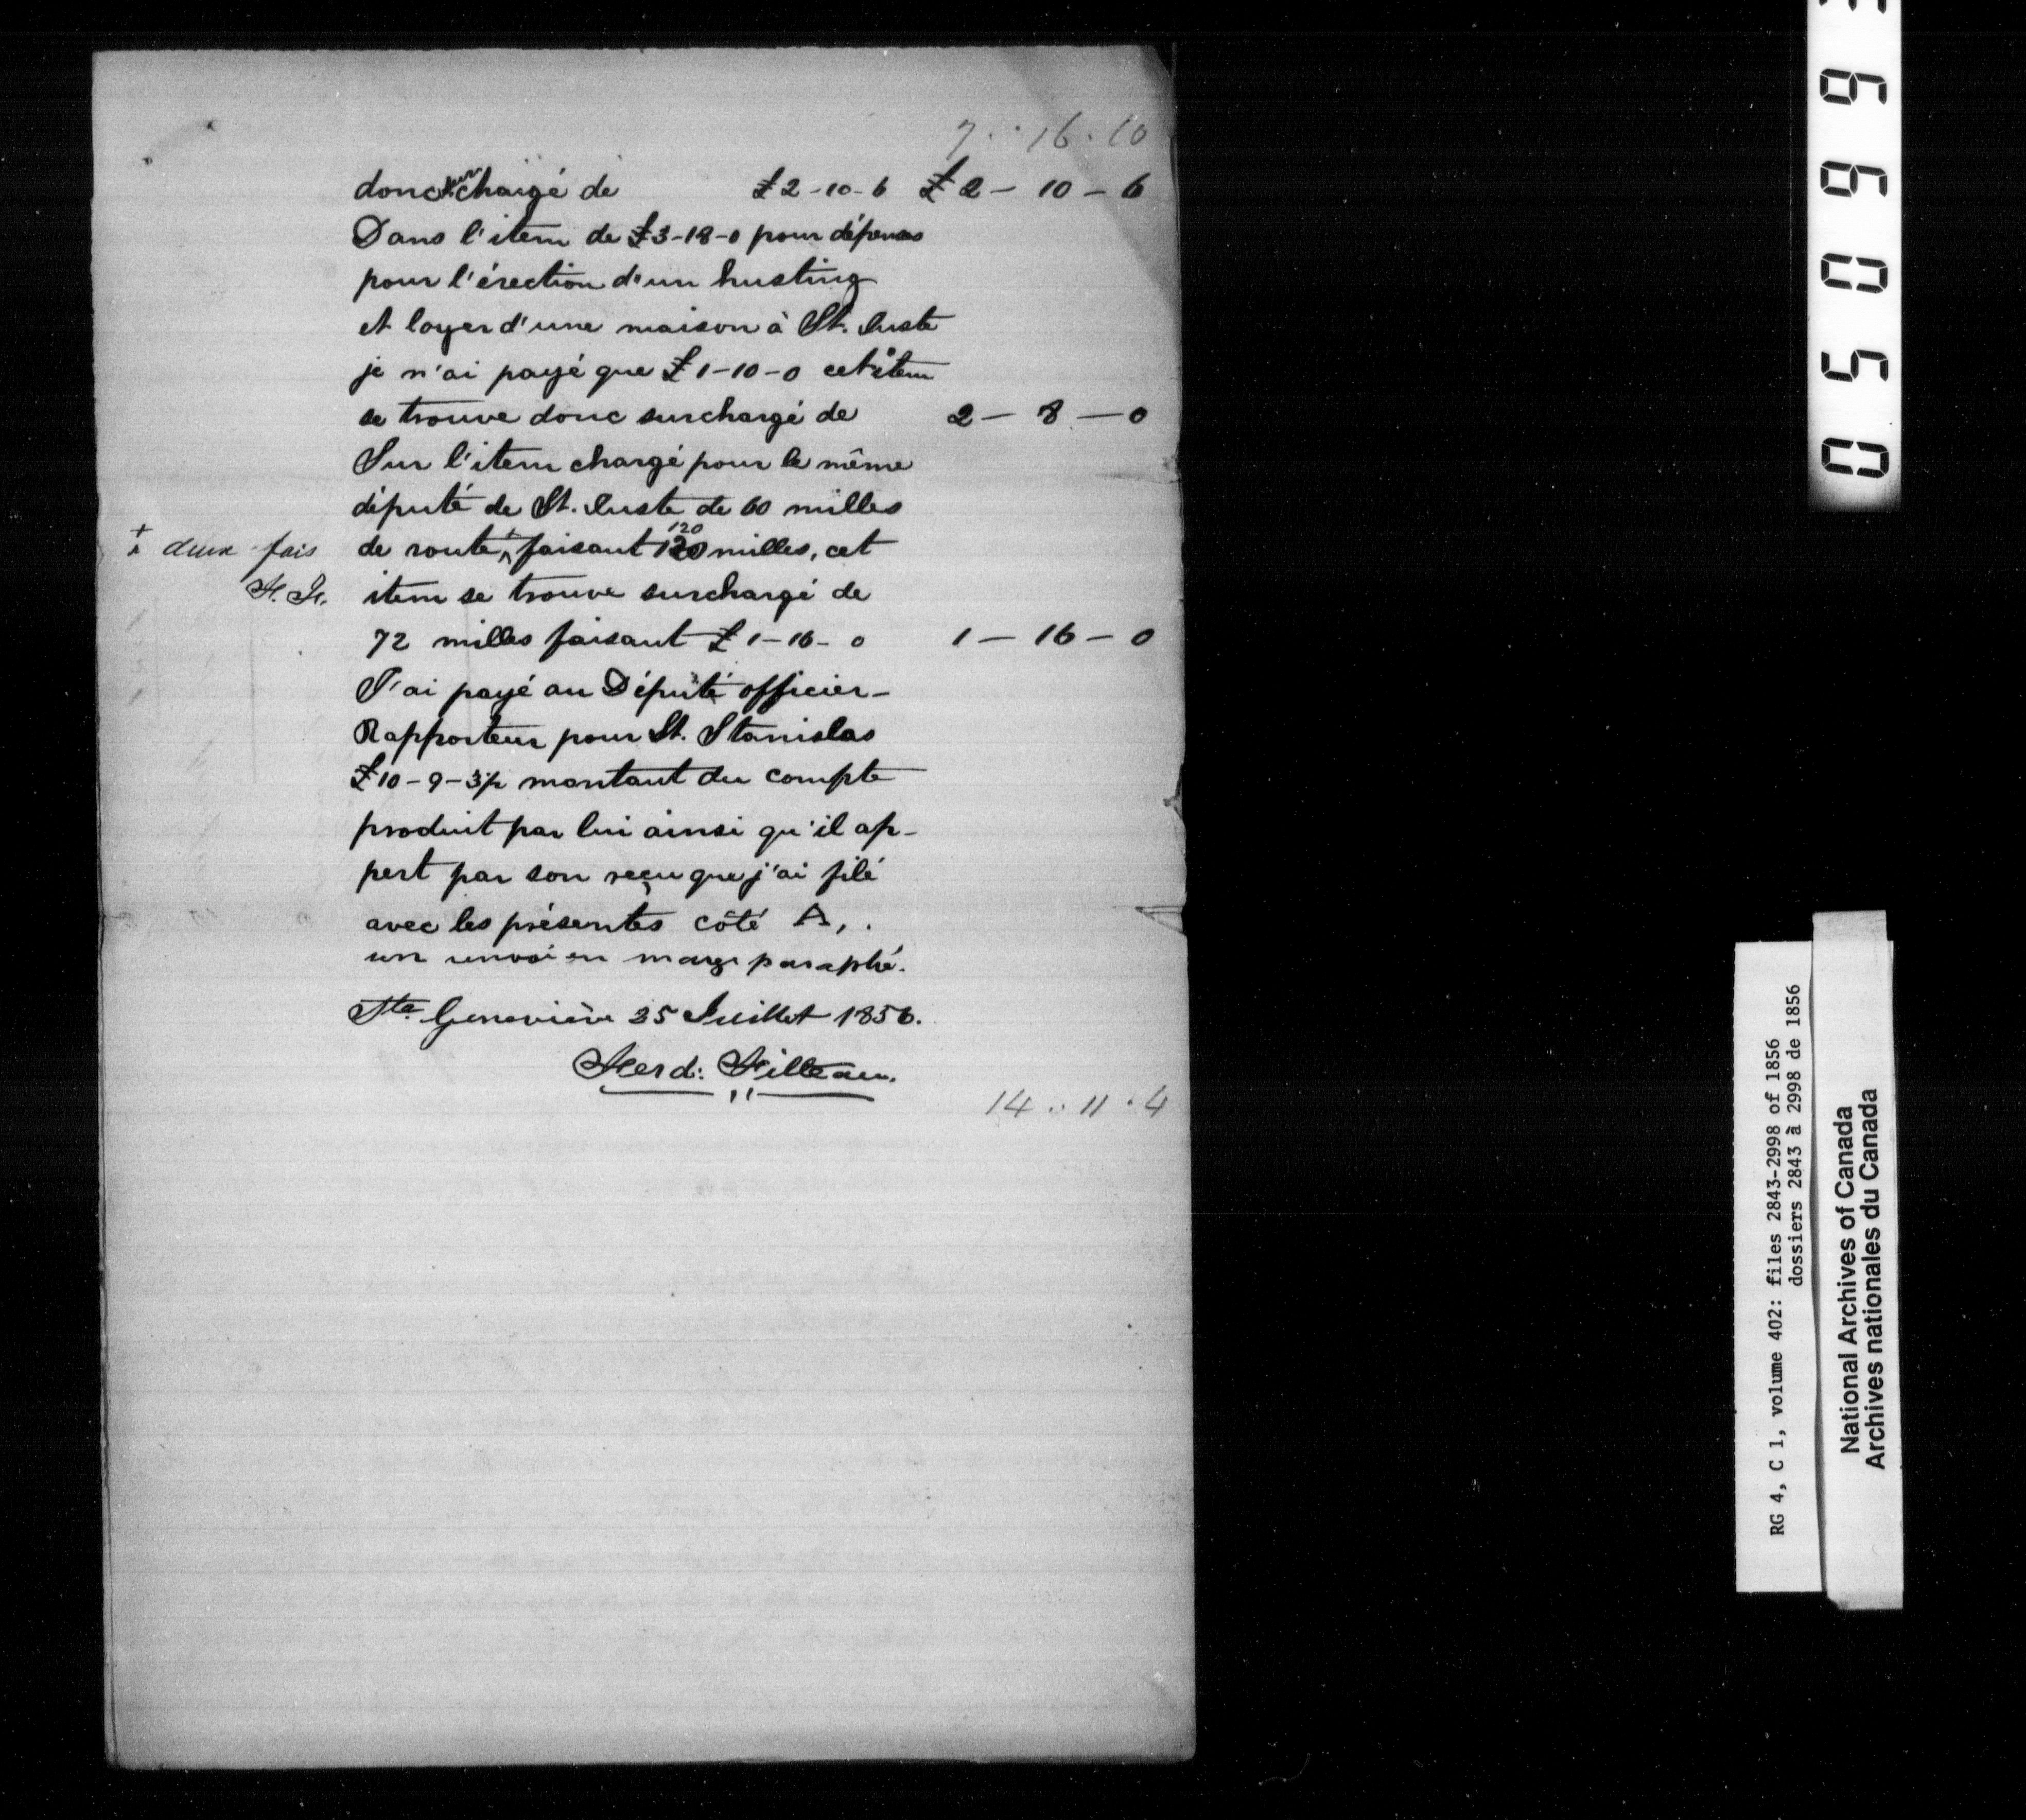 7 . . 16 . 10
donc surchargé de £2-10-6 £2 - 10 - 6
Dans l'item de £3-18-0 pour dépenses
pour l'érection d'un husting
et loyer d'une maison à St. Juste
je n'ai payé que £1-10-0 cet item
se trouve donc surchargé de 2 - 8 - 0
Sur l'item chargé pour le même
député de St. Juste de 60 milles
+ deux fois de route + faisant 120 120 milles, cet
item se trouve surchargé de
72 milles faisant £1-16-0 1 - 16 - 0
J'ai payé au Député officier-
Rapporteur pour St. Stanislas
£10-9-3½ montant du compte
produit par lui ainsi qu'il ap-
pert par son reçu que j'ai filé
avec les présentes côté A, .
un renvoi en marge paraphé.
Ste Geneviève 25 Juillet 1856.
Ferd: Filteau.
14 . . 11 . 4
0 5 0 9 9
RG 4, C 1, volume 402: files 2843-2998 of 1856
dossiers 2843 à 2998 de 1856
National Archives of Canada
Archives nationales du Canada